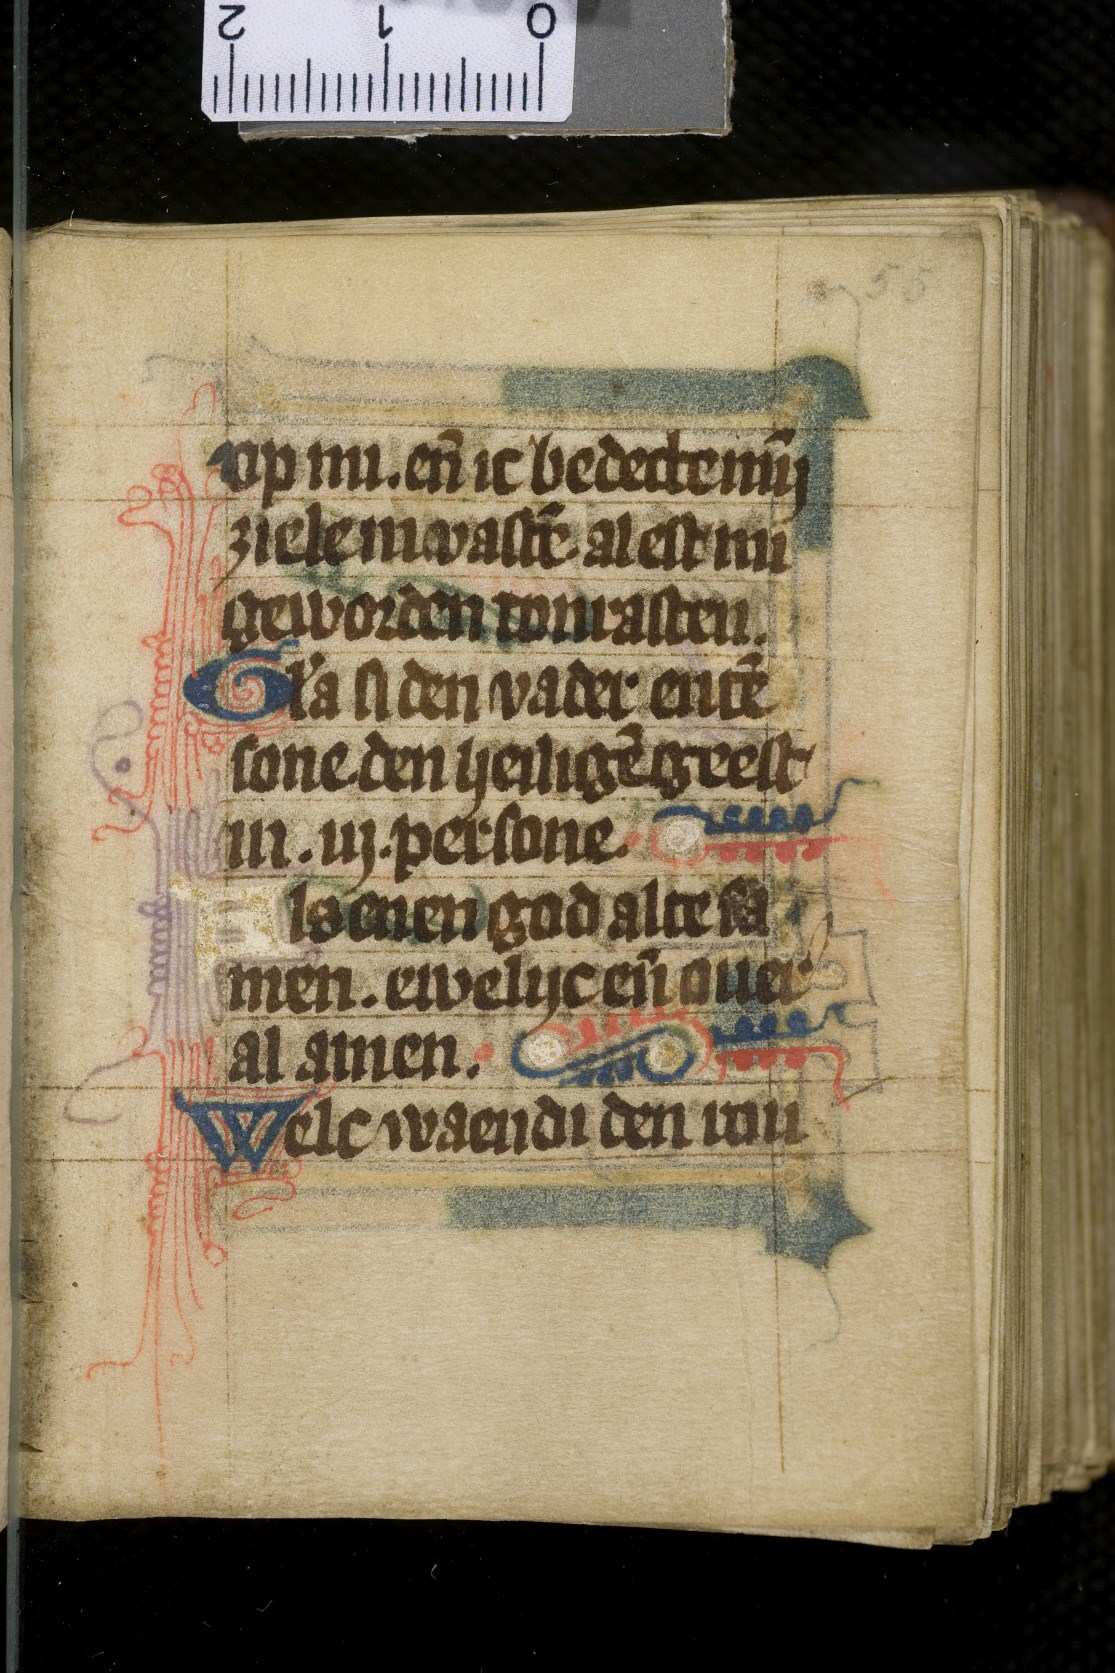 2 1 0
55
op mi. en̄ ic bedecte mijn̄
ziele in vastē. al est mi
geworden tonrasten.
Gl'a si den vader entē
sone den heiligē geest
in. iij. persone.
Als enen god alte sa
men. ewelijc en̄ ouer
al amen.
Welc waendi den